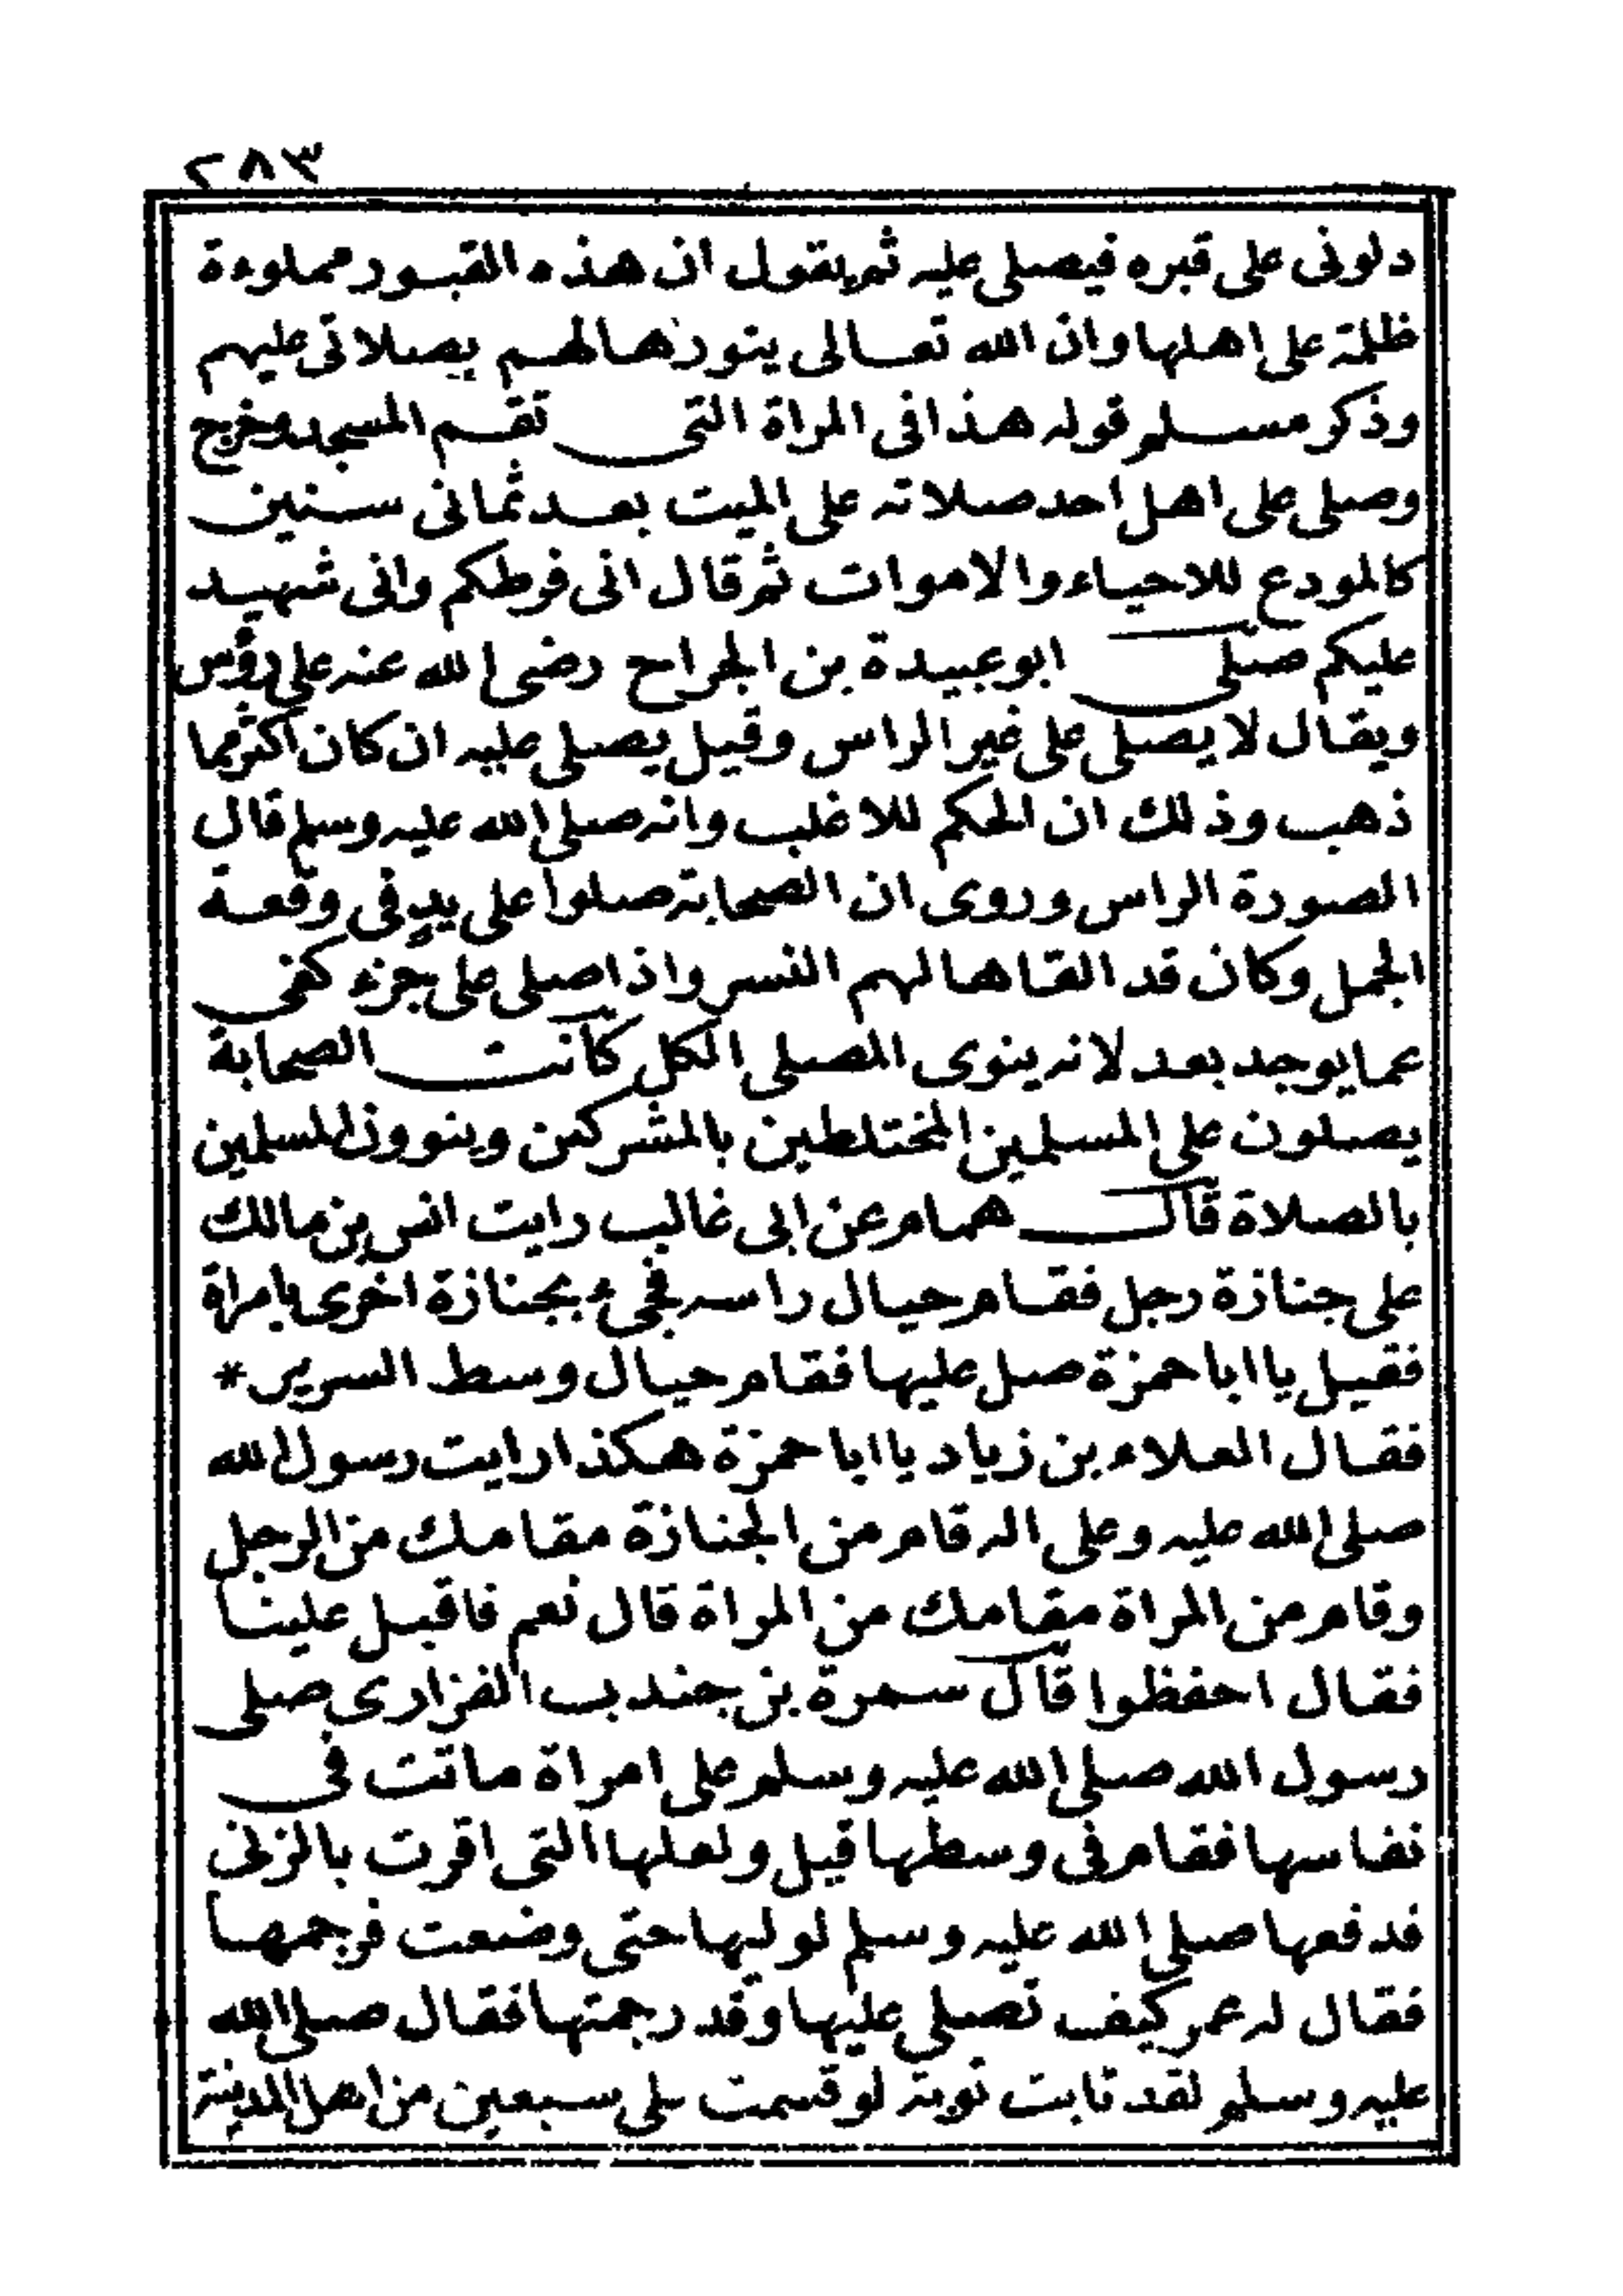 ٢٨٣
دلونى على قبره فيصلى عليه ثم يقول ان هذه القبور مملوءة
ظلمة على اهلها وان الله تعالى ينورها لهم بصلاتى عليهم
وذكر مسلم قوله هذا فى المراة التى تقم المسجد وخرج
وصلى على اهل احد صلاته على الميت بعد ثمانى سنين
كالمودع للاحياء والاموات ثم قال انى فرطكم وانى شهيد
عليكم صلى ابو عبيدة بن الجراح رضى الله عنه على رؤس
ويقال لا يصلى على غير الراس وقيل يصلى عليه ان كان اكثر مما
ذهب وذلك ان الحكم للاغلب وانه صلى الله عليه وسلم قال
الصورة الراس وروى ان الصحابة صلوا على يد فى وقعة
الجمل وكان قد القاها لهم النسر واذا صلى على جزء كفى
عما يوجد بعد لانه ينوى المصلى الكل كانت الصحابة
يصلون على المسلمين المختلطين بالمشركين وينوون المسلمين
بالصلاة قال همام عن ابى غالب رايت انس بن مالك
على جنازة رجل فقام حيال راسه فجىء بجنازة اخرى بامراة
فقيل يا ابا حمزة صل عليها فقام حيال وسط السرير *
فقال العلاء بن زياد يا ابا حمزة هكذا رايت رسول الله
صلى الله عليه وعلى اله قام من الجنازة مقامك من الرجل
وقام من المراة مقامك من المراة قال نعم فاقبل علينا
فقال احفظوا قال سمرة بن جندب الفزارى صلى
رسول الله صلى الله عليه وسلم على امراة ماتت فى
نفاسها فقام فى وسطها قيل ولعلها التى اقرت بالزنى
فدفعها صلى الله عليه وسلم لوليها حتى وضعت فرجمها
فقال له عمر كيف تصلى عليها وقد رجمتها فقال صلى الله
عليه وسلم لقد تابت توبة لو قسمت على سبعين من اهل المدينة